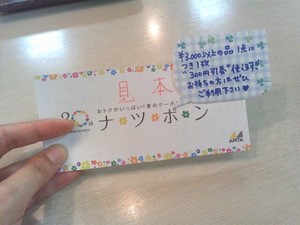 ¥3,000以上の品 1点に
つき1枚
300円引券 使えます♪
お持ちの方はぜひ
ご利用下さい♥
見本
おトクがいっぱい!夏のクーポン
20
ナツ★ポン
ARTA